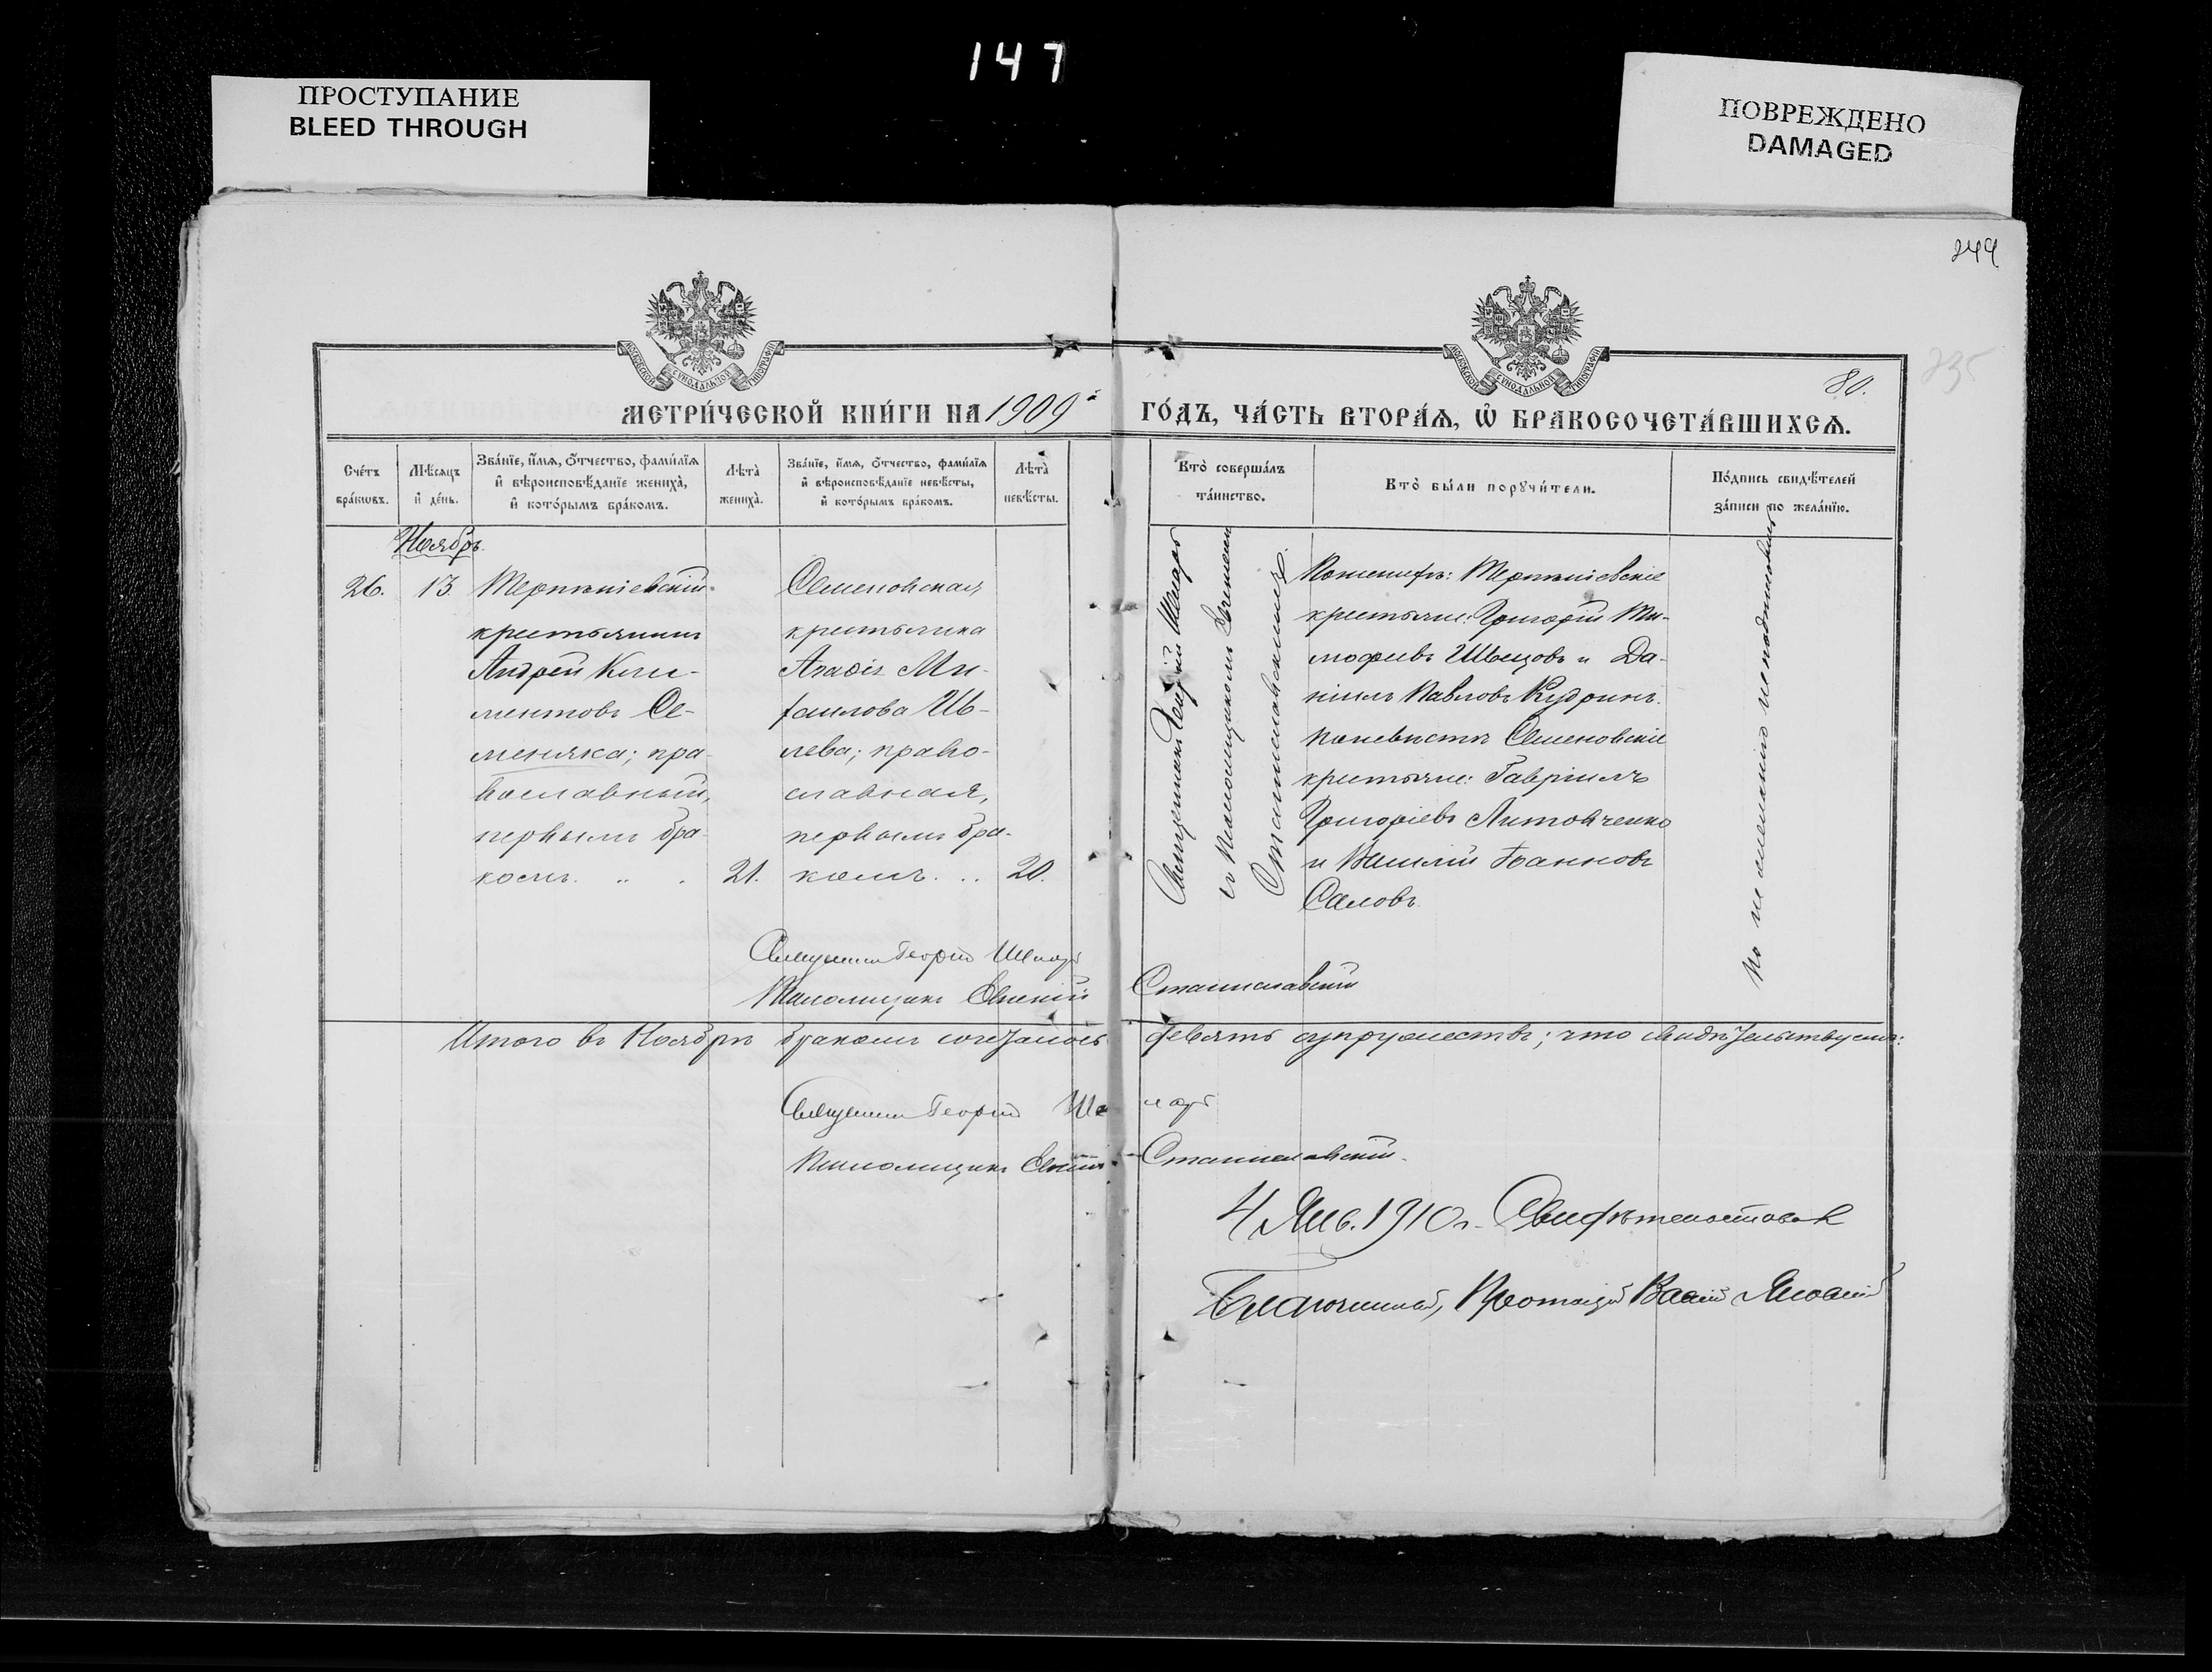 147
ПРОСТУПАНИЕ
BLEED THROUGH
ПОВРЕЖДЕНО
DAMAGED
244
235
80.
МОСКОВСКОЙ СѴНОДАЛЬНОЙ ТИПОГРАФІИ
МОСКОВСКОЙ СѴНОДАЛЬНОЙ ТИПОГРАФІИ
МЕТРИ́ЧЕСКОЙ КНИ́ГИ НА 1909й ГО́ДЪ, ЧА́СТЬ ВТОРА́Ѧ, Ѽ БРАКОСОЧЕТА́ВШИХСѦ.
Счéтъ бра́кѡвъ.
Мѣ́сяцъ и҆ де́нь.
Зва́нїе, и҆́мѧ, ѻ҆́тчество, фами́лїѧ и҆ вѣроисповѣ́данїе жениха̀, и҆ кото́рымъ бра́комъ.
Лѣ́та жениха̀.
Зва́нїе, и҆́мѧ, ѻ҆́тчество, фами́лїѧ и҆ вѣроисповѣ́данїе невѣ́сты, и҆ кото́рымъ бра́комъ.
Лѣ́та невѣ́сты.
Кто̀ соверша́лъ та́инство.
Кто̀ бы́ли порꙋчи́тели.
По́дпись свидѣ́телей за́писи по жела́нїю.
Ноябрь.
26.
13.
крестьянинъ
Андрей Кли-
ментовъ Се-
меняка; пра-
вославный,
первымъ бра-
комъ. .. . 21.
Семеновская
крестьянка
Агафія Ми-
хаилова Ив-
лева; право-
славная,
первымъ бра-
комъ. .. 20.
Священникъ Георгій
съ Псаломщикомъ Евгеніемъ
Станиславскимъ.
По женихѣ:
крестьяне: Григорій Ти-
мофѣевъ Швецовъ и Да-
ніилъ Павловъ Кудринъ.
По невѣстѣ Семеновскіе
крестьяне: Гавріилъ
Григоріевъ Литовченко
и Василій Іоанновъ
Саловъ.
По не желанію не подписались
Священникъ Георгій
Псаломщикъ Евгеній Станиславскій
Итого въ Ноябрѣ бракомъ сочеталось девять супружествъ; что свидѣтельствуемъ:
Священникъ Георгій
Псаломщикъ Евгеній Станиславскій.
4 Янв. 1910 г. Свидѣтельствовалъ
Благочинный, Протоіерей